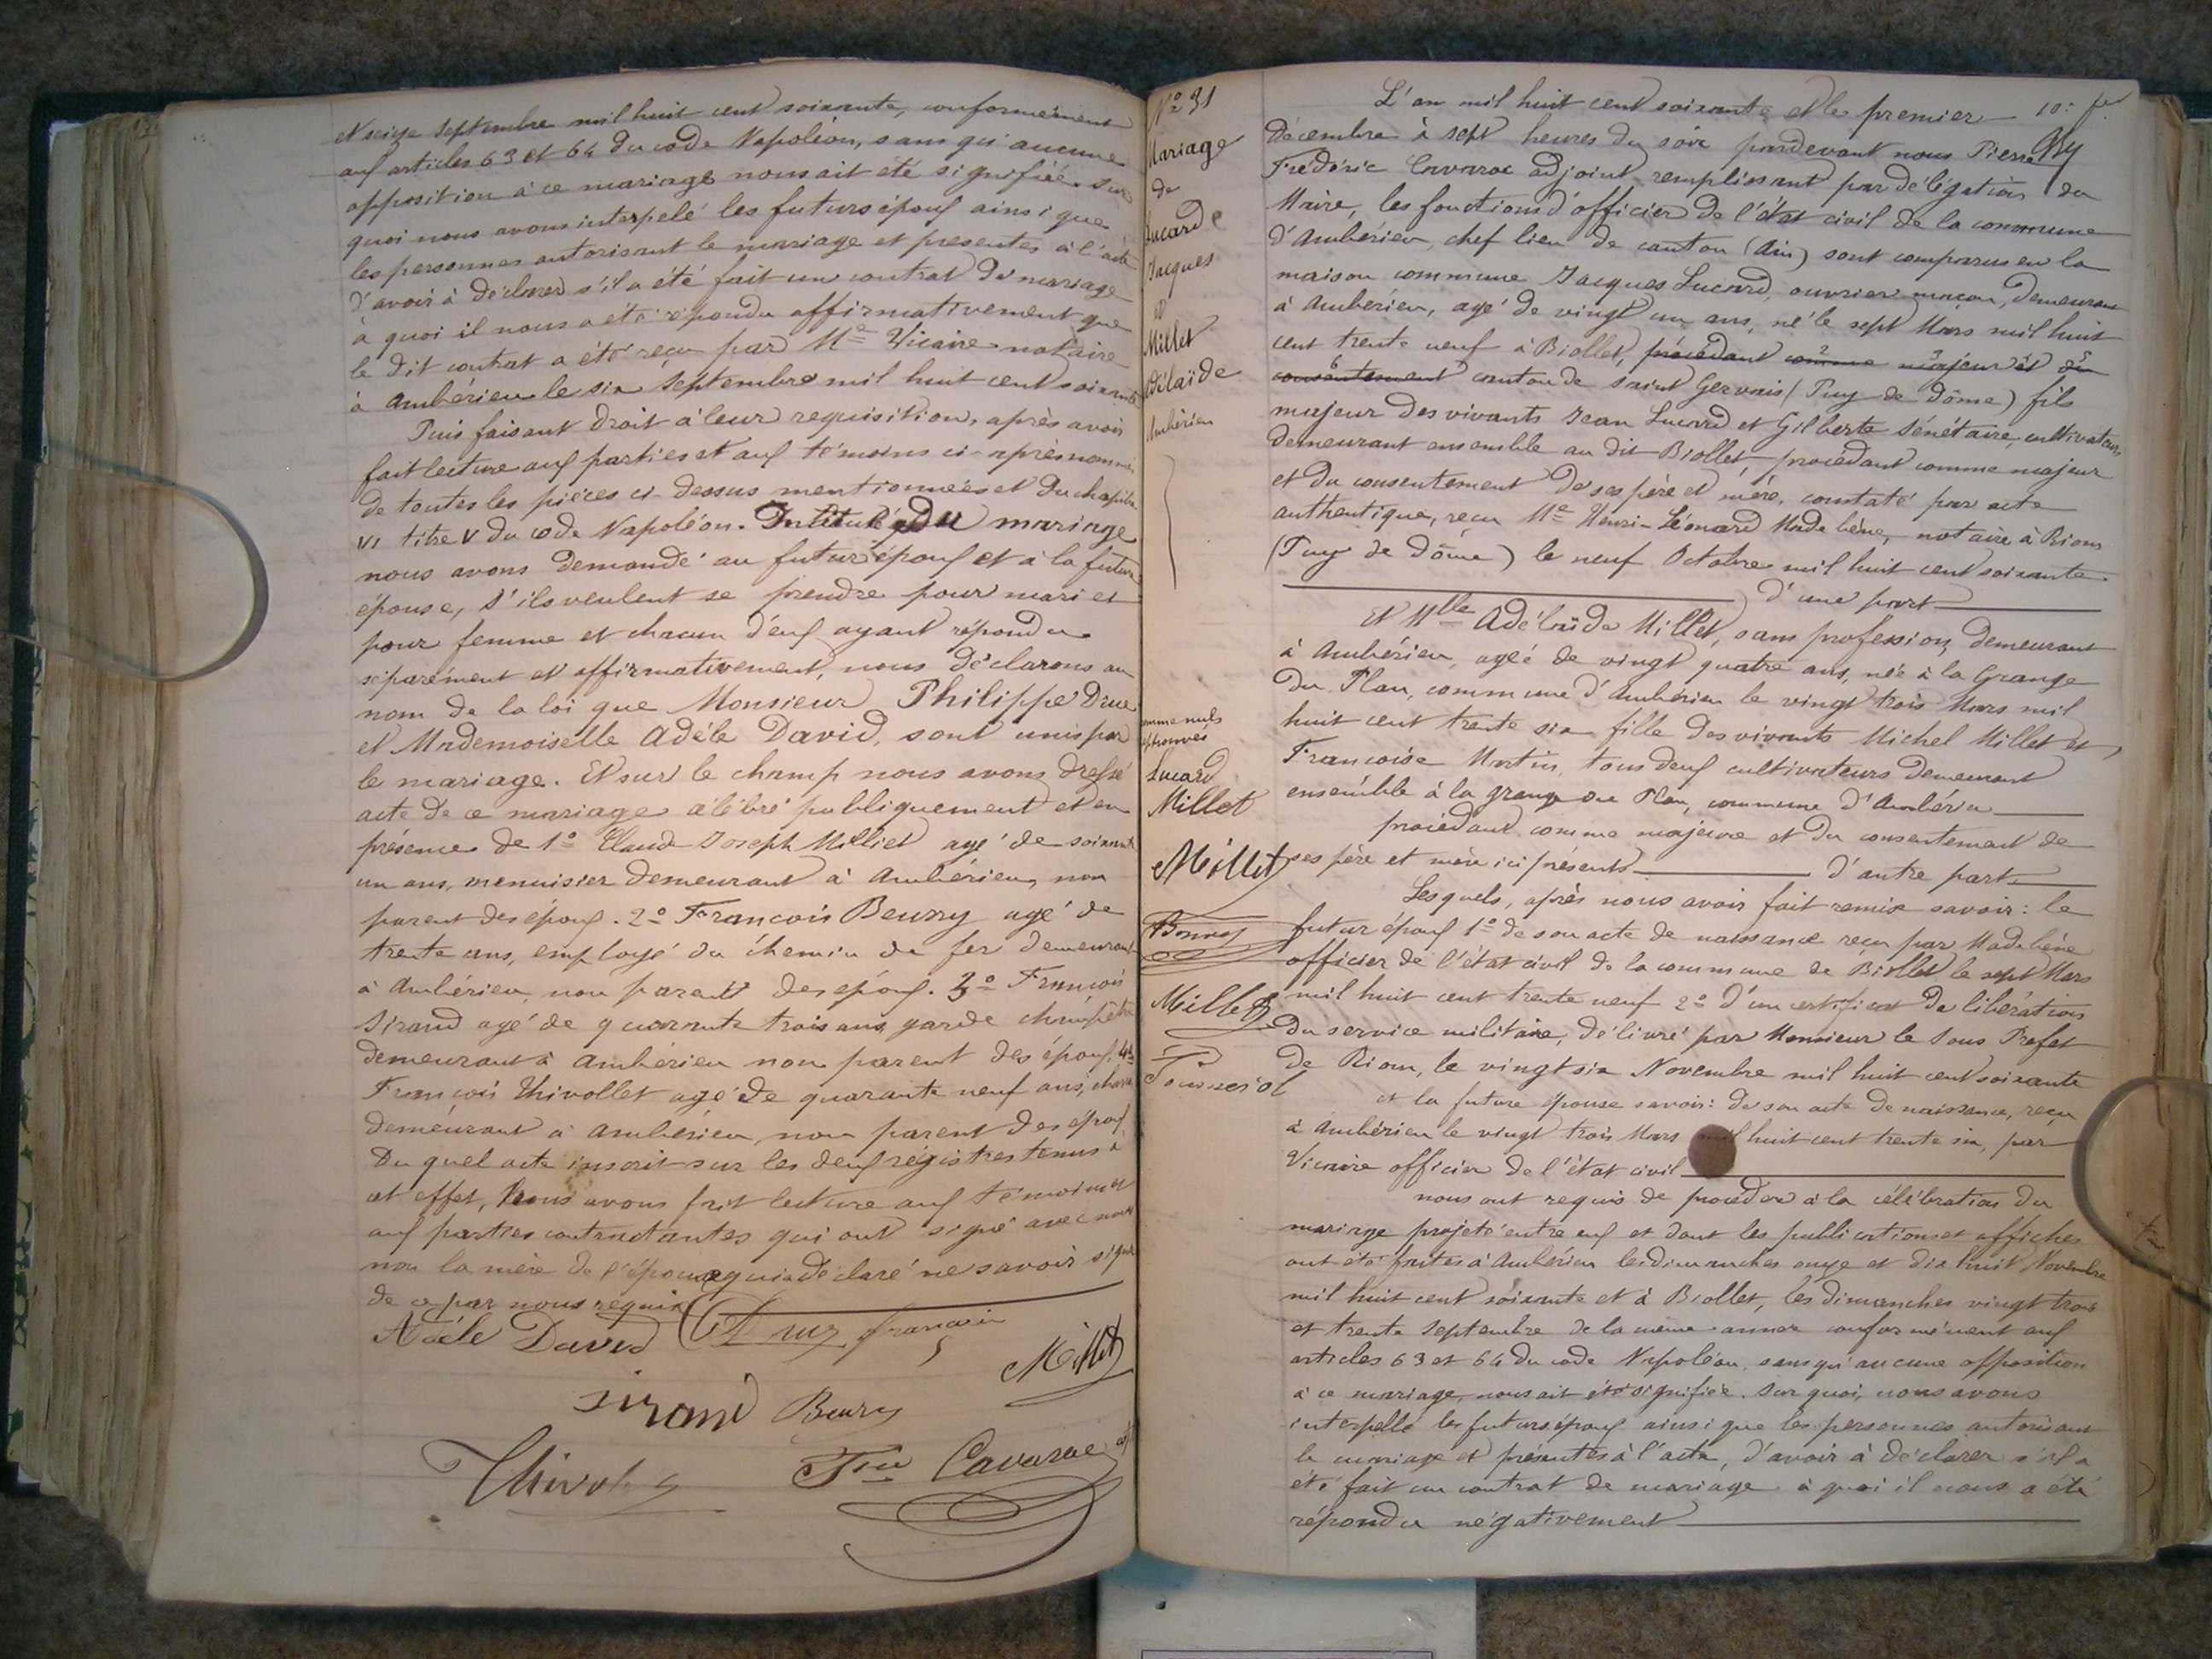 et seize Septembre mil huit cent soixante, conformément
aux articles 63 et 64 du code Napoléon, sans qu'aucune
opposition à ce mariage nous ait été signifiée. Sur
quoi nous avons interpelé les futurs époux ainsi que
les personnes autorisant le mariage et presentes à l'acte
d'avoir à déclarer s'il a été fait un contrat de mariage
à quoi il nous a été répondu affirmativement que
le dit contrat a été reçu par Me Vicaire notaire
à Ambérieu le six Septembre mil huit cent soixante
Puis faisant droit à leur requisition, après avoir
fait lecture aux parties et aux témoins ci-après nommés
de toutes les pièces ci-dessus mentionnées et du chapitre
VI titre V du code Napoléon. Intitulé du mariage
nous avons demandé au futur époux et à la future
épouse, s'ils veulent se prendre pour mari et
pour femme et chacun d'eux ayant répondu
séparément et affirmativement, nous déclarons au
nom de la loi que Monsieur Philippe Druz
et Mademoiselle Adèle David, sont unis par
le mariage. Et sur le champ nous avons dressé
acte de ce mariage célébré publiquement et en
présence de 1o Claude Joseph Milliet agé de soixante
un ans, menuisier demeurant à Ambérieu, non
parent des époux. 2o François Beurry agé de
trente ans, employé du chemin de fer demeurant
à Ambérieu, non parent des époux. 3o François
Sirand agé de quarante trois ans, garde champêtre
demeurant à Ambérieu non parent des époux. 4o
François Thivollet agé de quarante neuf ans,
demeurant à Ambérieu, non parent des époux
Du quel acte inscrit sur les deux régistres tenus à
cet effet, Nous avons fait lecture aux témoins et
aux parties contractantes qui ont signé avec nous
non la mère de l'épouse qui a déclaré ne savoir signer
de ce par nous requise
Adèle David Druz françois
Sirand Beurry Milliet
Thivollet Fric Cavaroc adj
No 31
Mariage
de
Lucard
Jacques
et
Millet
Adélaïde
Ambérieu
comme nuls
approuvés
Lucard
Millet
Millet
Millet
10: f.
L'an mil huit cent soixante et le premier
Décembre à sept heures du soir pardevant nous Pierre
Frédéric Cavaroc adjoint remplissant par délégation du
Maire, les fonctions d'officier de l'état civil de la commune
d'Ambérieu, chef lieu de canton (Ain) sont comparus en la
maison commune Jacques Lucard, ouvrier maçon, demeurant
à Ambérieu, agé de vingt un ans, né le sept Mars mil huit
cent trente neuf à Biollet, procédant comme majeur et du
consentement canton de saint Gervais (Puy de Dôme) fils
majeur des vivants Jean Lucard et Gilberte Sénétaire, cultivateurs
demeurant ensemble au dit Biollet, procédant comme majeur
et du consentement de ses père et mère, constaté par acte
authentique, reçu Me Henri-Léonard Madebène, notaire à Riom
(Puy de Dôme) le neuf Octobre mil huit cent soixante
d'une part
Et Mlle Adélaïde Millet, sans profession, demeurant
à Ambérieu, agée de vingt quatre ans, née à la Grange
du Plan, commune d'Ambérieu le vingt trois Mars mil
huit cent trente six fille des vivants Michel Millet et
Francoise Martin, tous deux cultivateurs demeurant
ensemble à la grange du Plan, commune d'Ambérieu
procédant comme majeure et du consentement de
ses père et mère ici présents d'autre part
Lesquels, après nous avoir fait remise savoir: le
futur époux 1o de son acte de naissance reçu par Madebène
officier de l'état civil de la commune de Biollet le sept Mars
mil huit cent trente neuf 2o d'un certificat de libération
du service militaire, délivré par Monsieur le Sous Prefet
de Riom, le vingt six Novembre mil huit cent soixante
et la future épouse savoir: de son acte de naissance, reçu
à Ambérieu le vingt trois Mars mil huit cent trente six, par
Vicaire officier de l'état civil
nous ont requis de procéder à la célébration du
mariage projeté entre eux et dont les publications et affiches
ont été faites à Ambérieu les dimanches onze et dix huit Novembre
mil huit cent soixante et à Biollet, les dimanches vingt trois
et trente Septembre de la même année conformément aux
articles 63 et 64 du code Napoléon, sans qu'aucune opposition
à ce mariage, nous ait été signifiée. Sur quoi, nous avons
interpellé les futurs époux ainsi que les personnes autorisant
le mariage et présentes à l'acte, d'avoir à déclarer s'il a
été fait un contrat de mariage à quoi il nous a été
répondu négativement